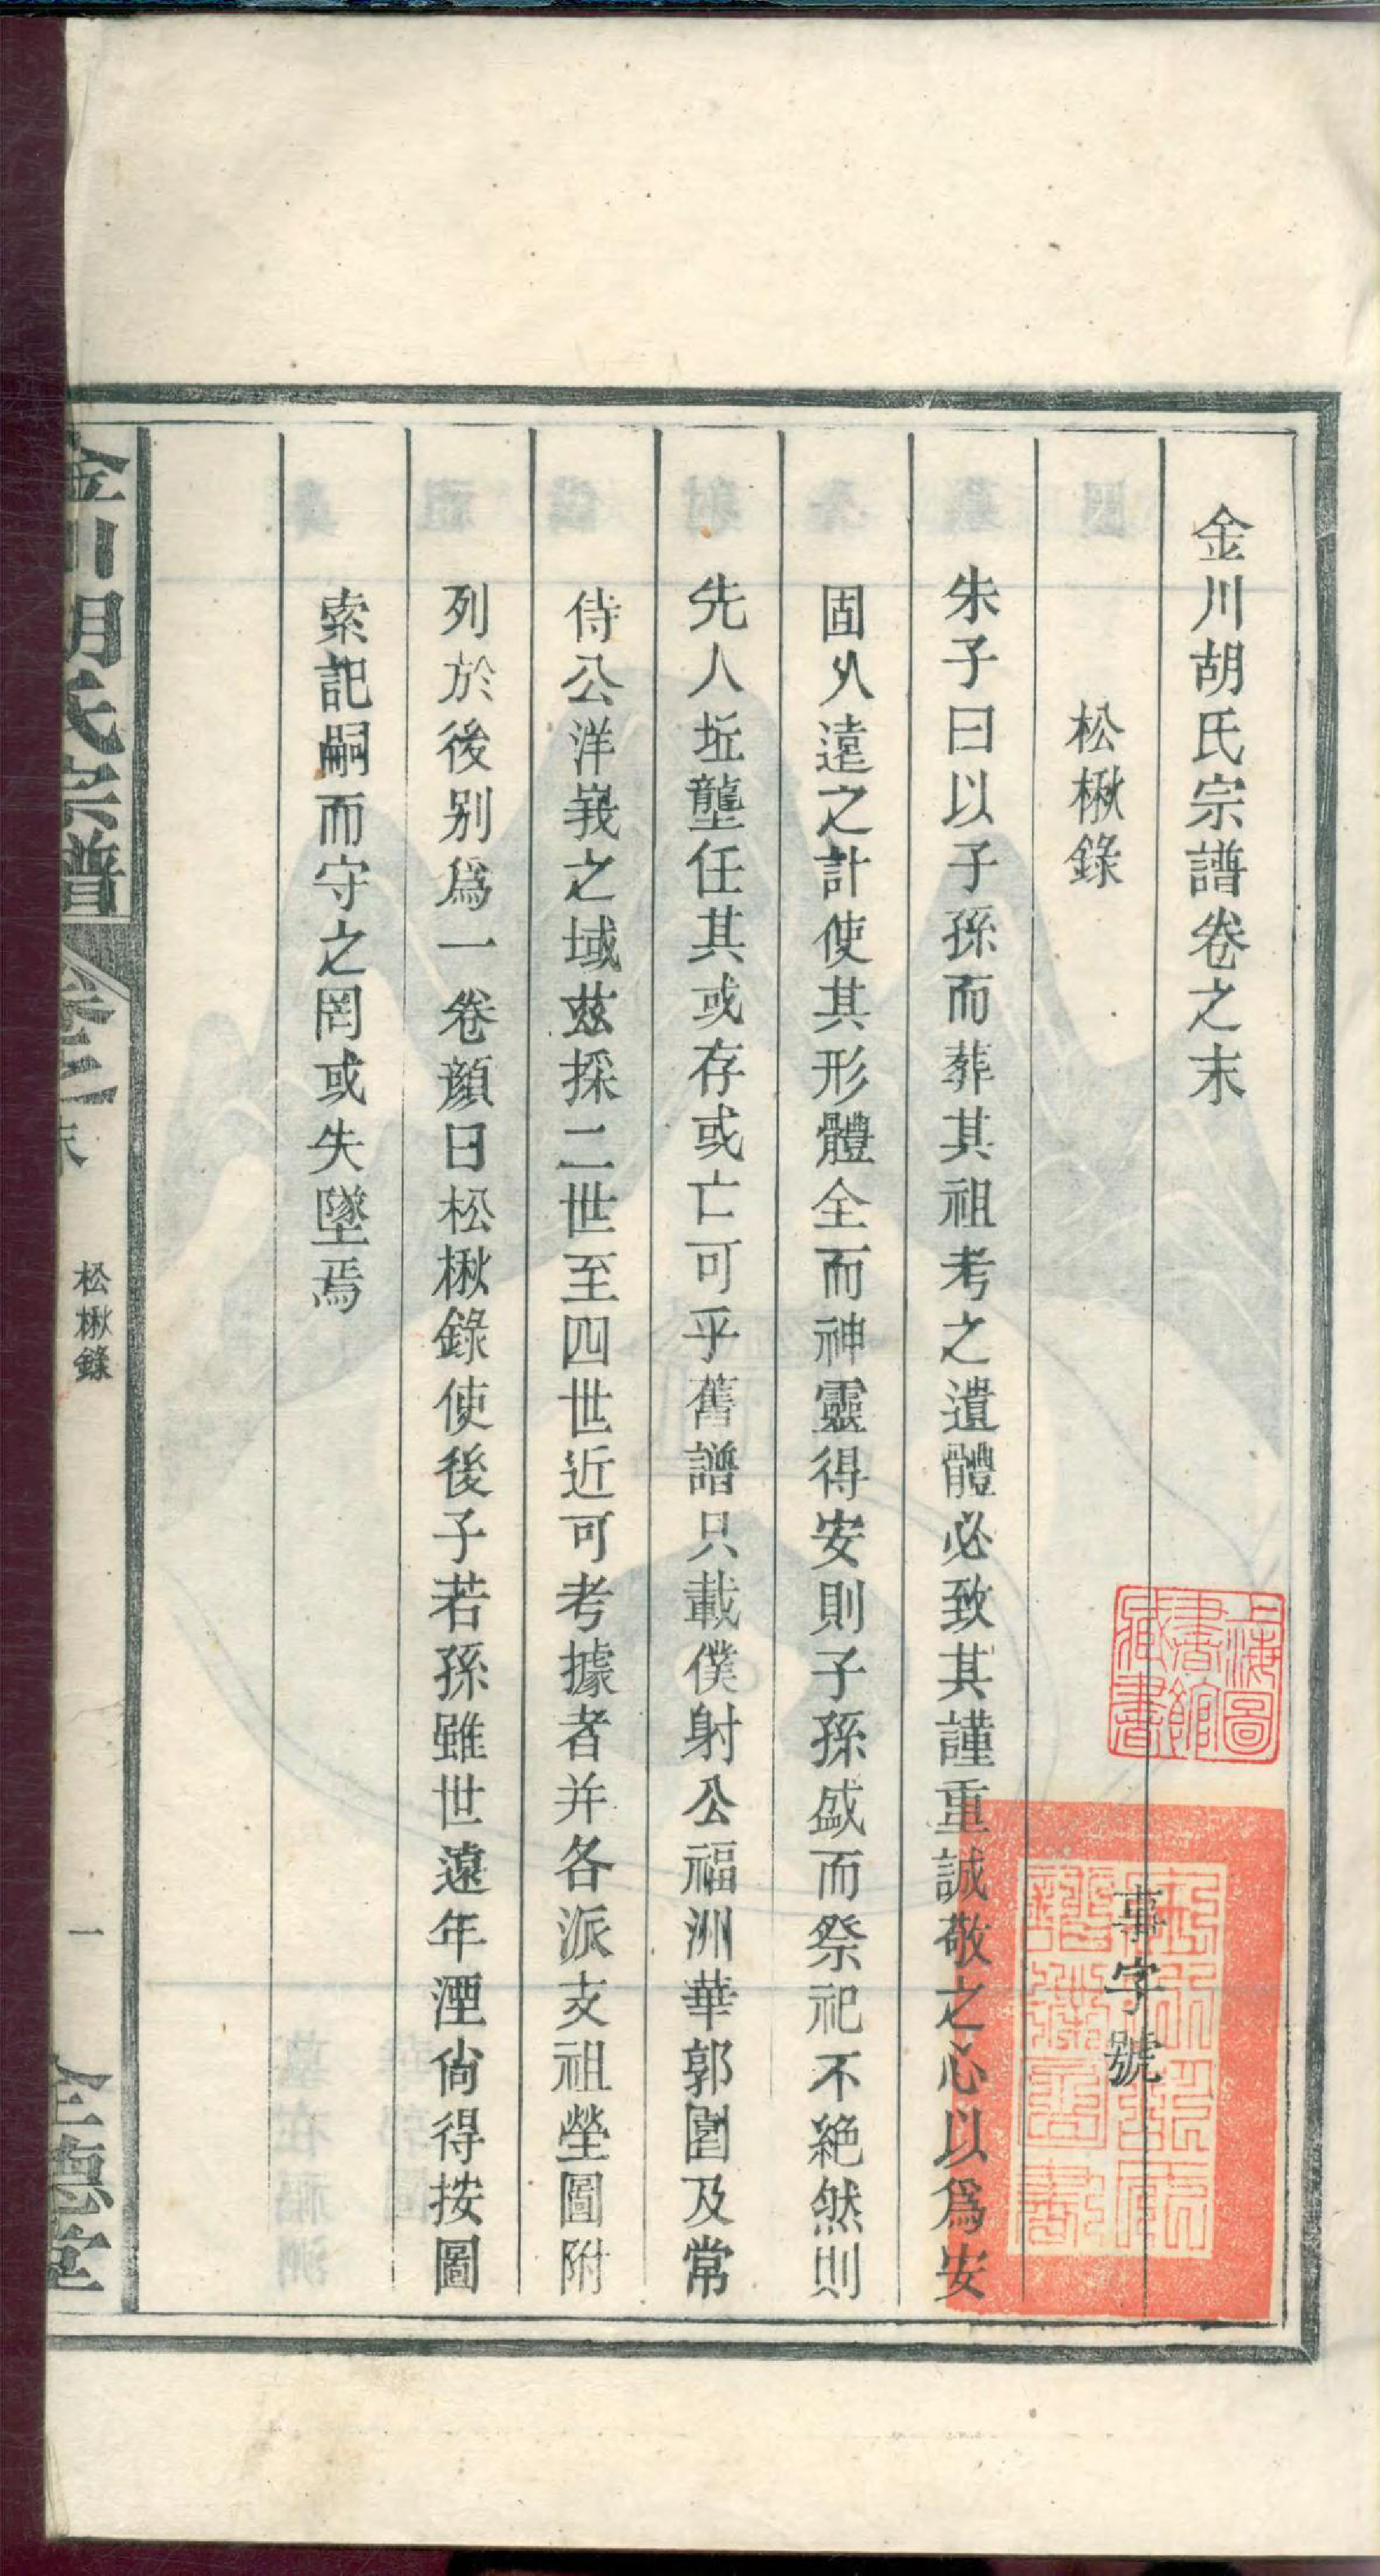 金川胡氏宗譜卷之末
事字號
松楸錄
朱子曰以子孫而葬其祖考之遺體必致其謹重誠敬之心以爲安
固久遠之計使其形體全而神靈得安則子孫盛而祭祀不絶然則
先人坵壟任其或存或亡可乎舊譜只載僕射公福洲華郭園及常
侍公洋峩之域兹採二世至四世近可考據者并各派支祖塋圖附
列於後别爲一卷顔曰松楸錄使後子若孫雖世遠年湮尙得按圖
索記嗣而守之罔或失墜焉
金川胡氏宗譜
卷之末
松楸錄
一
全德堂
上海圖書館藏書